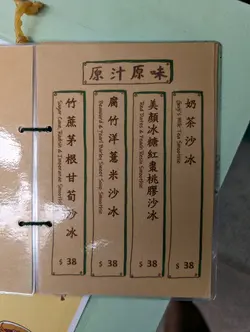 原汁原味
奶茶沙冰
Daily's Milk Tea Smoothie
$ 38
美顏冰糖紅棗桃膠沙冰
Red Dates & Peach Resin Smoothie
$ 38
腐竹洋薏米沙冰
Beancurd & Pearl Barley Sweet Soup Smoothie
$ 38
竹蔗茅根甘荀沙冰
Sugar Cane, Radish & Imperatae Smoothie
$ 38